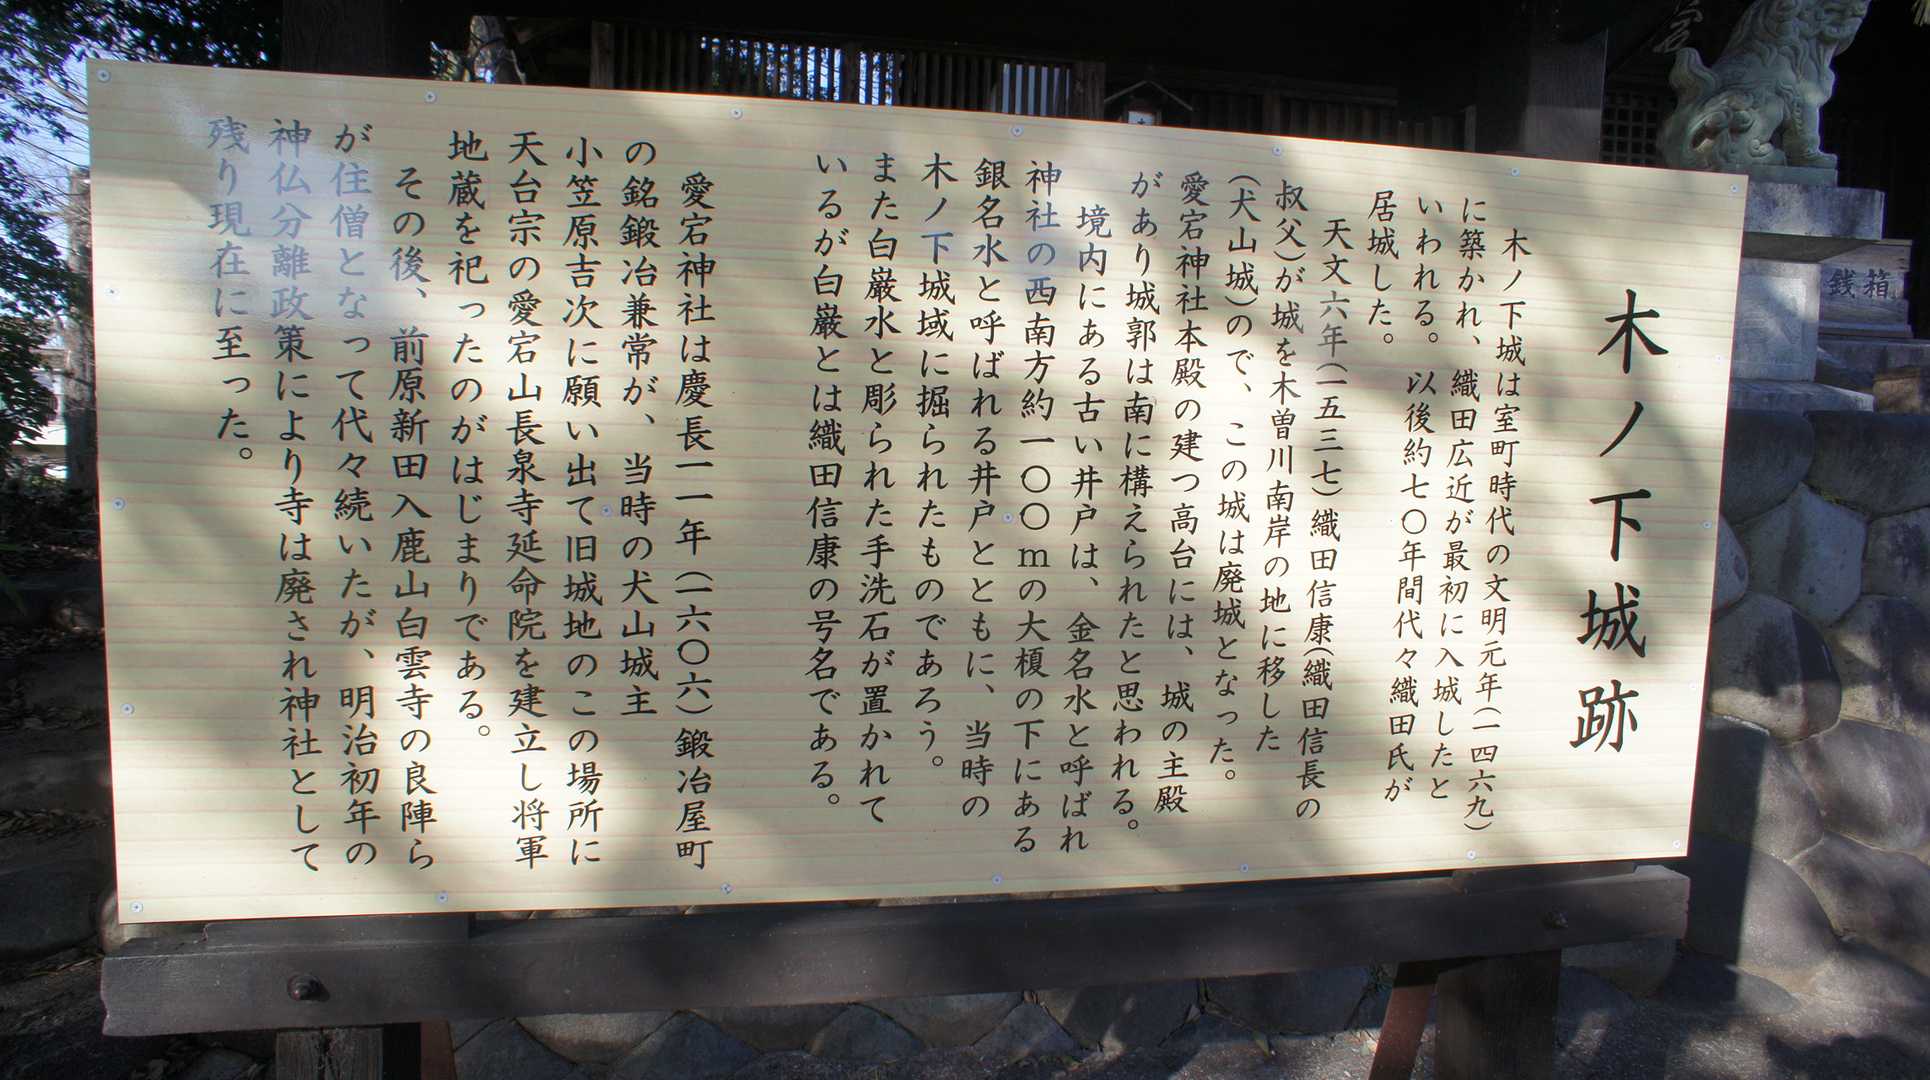 木ノ下城跡
木ノ下城は室町時代の文明元年(一四六九)
に築かれ、織田広近が最初に入城したと
いわれる。以後約七〇年間代々織田氏が
居城した。
天文六年(一五三七)織田信康(織田信長の
叔父)が城を木曽川南岸の地に移した
(犬山城)ので、この城は廃城となった。
愛宕神社本殿の建つ高台には、城の主殿
があり城郭は南に構えられたと思われる。
境内にある古い井戸は、金名水と呼ばれ
神社の西南方約一〇〇mの大榎の下にある
銀名水と呼ばれる井戸とともに、当時の
木ノ下城域に掘られたものであろう。
また白巌水と彫られた手洗石が置かれて
いるが白巌とは織田信康の号名である。
愛宕神社は慶長一一年(一六〇六)鍛冶屋町
の銘鍛冶兼常が、当時の犬山城主
小笠原吉次に願い出て旧城地のこの場所に
天台宗の愛宕山長泉寺延命院を建立し将軍
地蔵を祀ったのがはじまりである。
その後、前原新田入鹿山白雲寺の良陣ら
が住僧となって代々続いたが、明治初年の
神仏分離政策により寺は廃され神社として
残り現在に至った。
銭箱